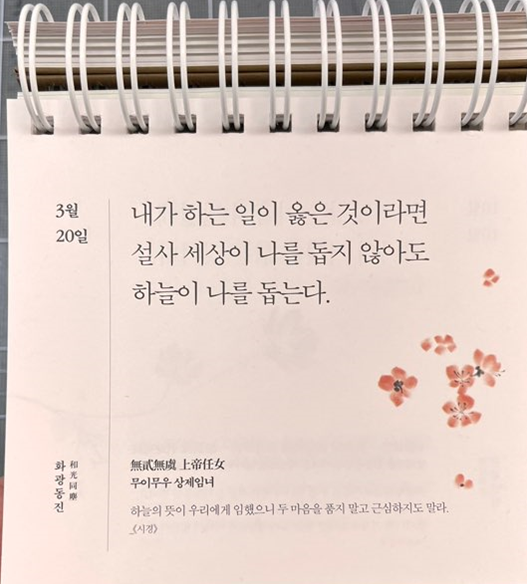 3월
20일
내가 하는 일이 옳은 것이라면
설사 세상이 나를 돕지 않아도
하늘이 나를 돕는다.
和光同塵
화광동진
無貳無虞 上帝任女
무이무우 상제임녀
하늘의 뜻이 우리에게 임했으니 두 마음을 품지 말고 근심하지도 말라.
_《시경》